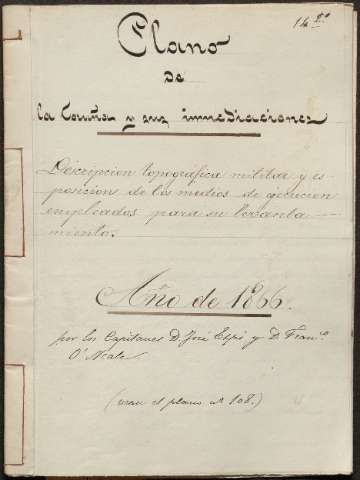 14 2º
Plano
de
la Coruña y sus inmediaciones
Descripcion topográfica militar y es
posicion de los medios de ejecucion
empleados para su levanta
miento.
Año de 1866.
por los Capitanes D. José Espi y D. Franco
O'Neale
(vease el plano nº 108.)